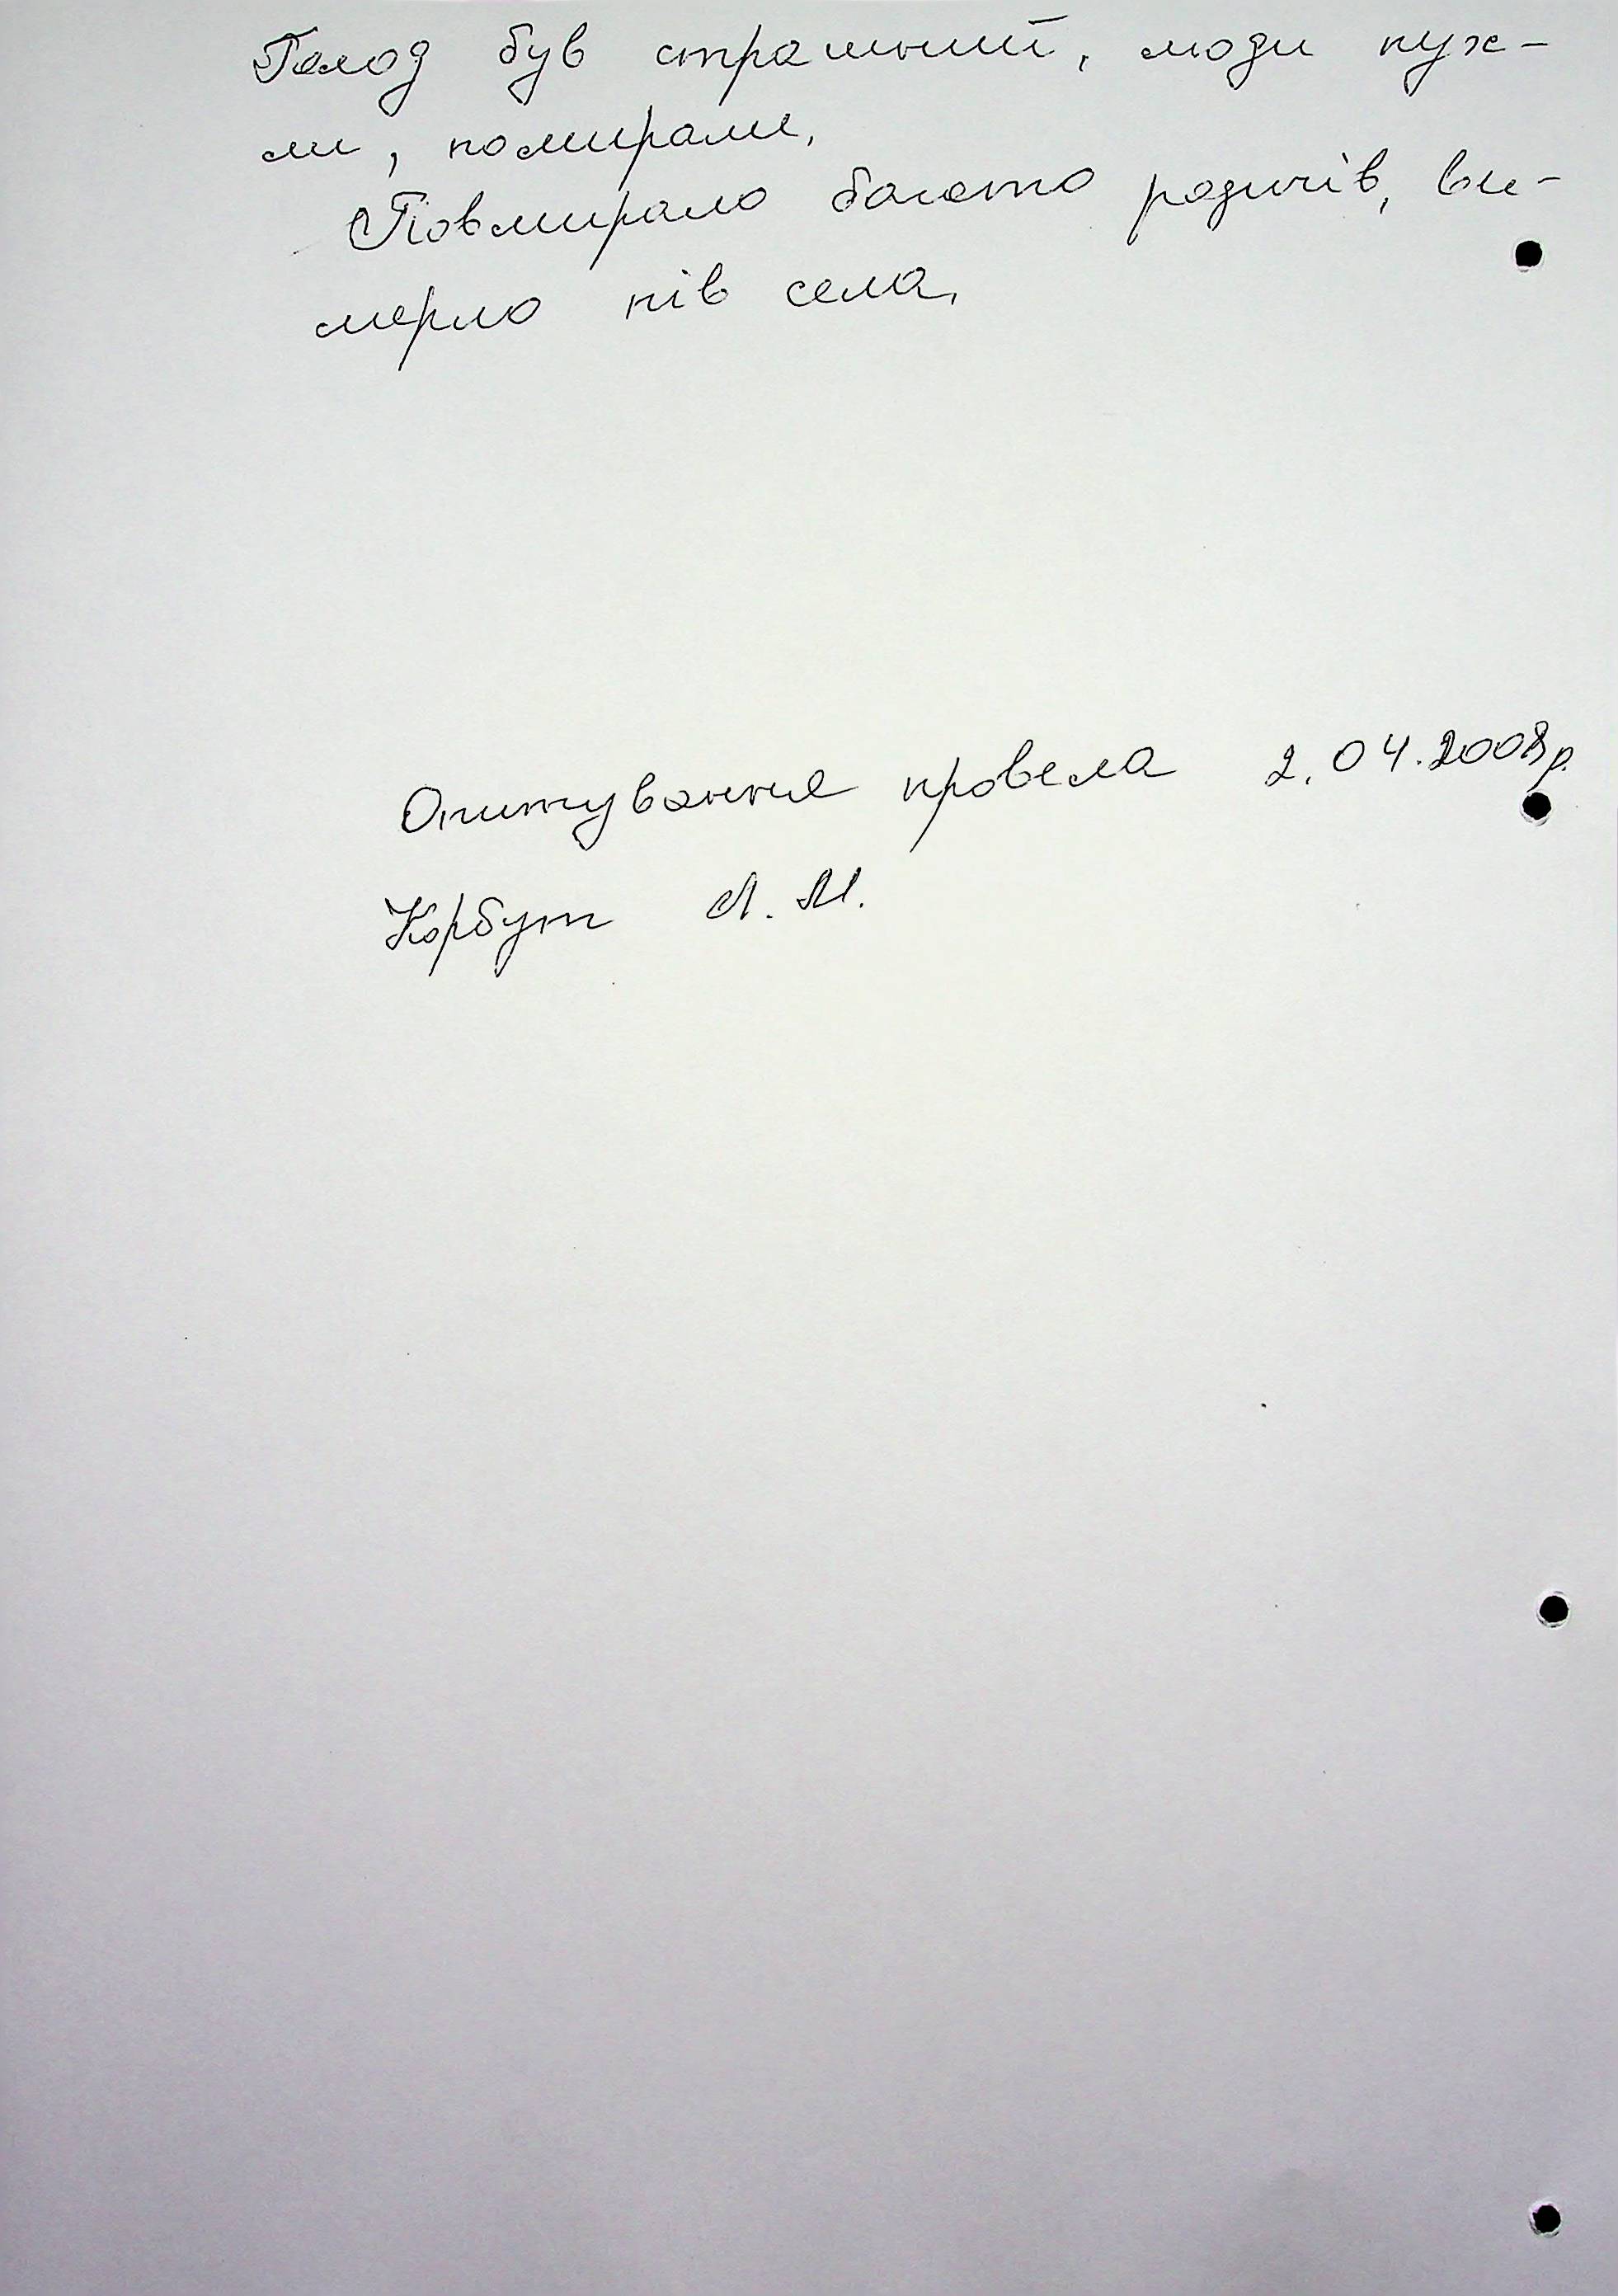 Голод був страшний, люди пух-
ли, помирали.
Повмирало багато родичів, ви-
мерло пів села.
Опитування провела 2.04.2008р.
Корбут Л. М.